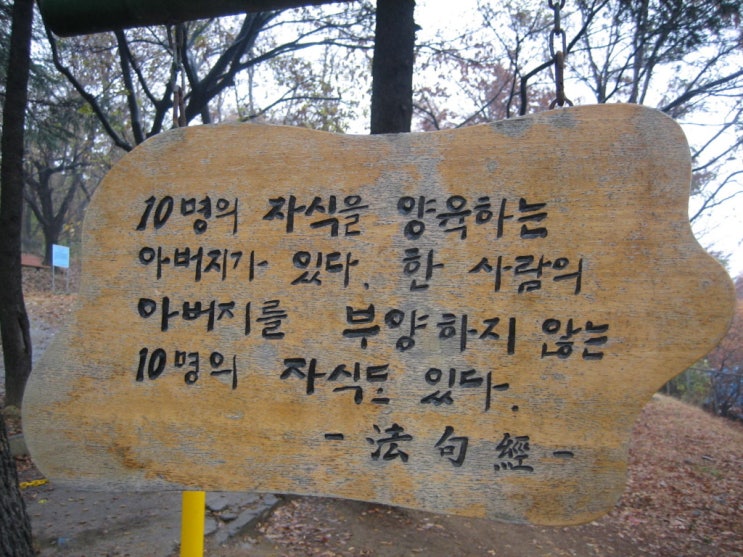 10명의 자식을 양육하는
아버지가 있다. 한 사람의
아버지를 부양하지 않는
10명의 자식도 있다.
- 法句經 -